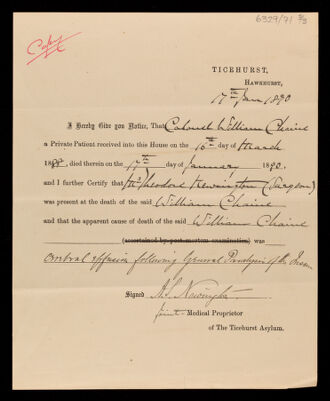 6329/71 3/3
Copy
TICEHURST,
HAWKHURST,
17th Jan 1880
I Hereby Give you Notice, That Colonel William Chaine
a Private Patient received into this House on the 16th day of March
18 , died therein on the 17th day of January 1880.
and I further Certify that Mr Theodore Newington (Surgeon)
was present at the death of the said William Chaine
and that the apparent cause of death of the said William Chaine
(ascertained by post-mortem examination) was
Cerebral effusion following General Paralysis of the Insane
Signed A.S. Newington
Joint-Medical Proprietor
of The Ticehurst Asylum.